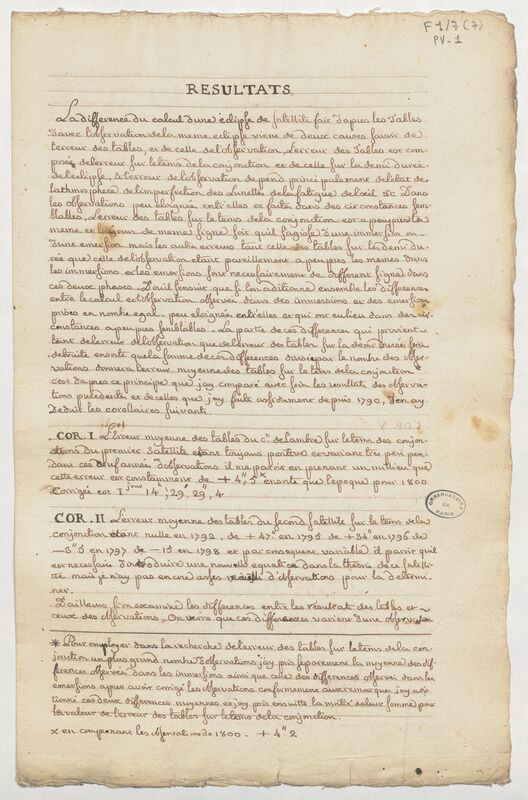 F 1/7 (7)
PV-1
RESULTATS
La difference du calcul d'une éclipse de satellite fait d'apres les Tables
d'avec l'observation de la meme eclipse vient de deux causes savoir de
l'erreur des tables, et de celle de l'observation, L'erreur des Tables est com-
posée de l'erreur sur le tems de la conjonction et de celle sur la demi durée
de l'eclipse, & l'erreur de l'observation depend principalement de l'etat de
l'athmosphere de l'imperfection des Lunettes de la fatigue de l'oeil &c Dans
les observations peu eloignée entr'elles et faites dans des circonstances sem-
blables, L'erreur des tables sur le tems de la conjonction est a peu pres la
meme et toujours de meme signe soit qu'il s'agisse d'une immersion ou
d'une emersion mais les autre erreurs tant celle des tables sur la demi du-
rée que celle de l'observation etant pareillement a peu pres les memes dans
les immersions et les emersions sont necessairement de different signe dans
ces deux phases. D'ail s'ensuit que si l'on aditionne ensemble les differences
entre le calcul et l'observation observée dans des immersions et des emersions
prises en nombre egal peu eloignées entr'elles et qui ont eu lieu dans des cir-
constances a peu pres semblables. La partie de ces differences qui provient
tant de l'erreur de l'observation que de l'erreur des tables sur la demi durée sera
detruite ensorte que la somme de ces differences divisée par le nombre des obser-
vations donnera l'erreur moyenne des tables sur le tems de la conjonction
c'est d'apres ce principe que j'ay comparé avec soin les resultats des observa-
tions precedente et de celles que j'ay faite assidument depuis 1790, J'en ay
Deduit les corollaires suivant.
COR. I L'erreur moyenne des tables du c.n Delambre sur le tems des conjon-
ctions du premier Satellite etant toujours positive et variant tres peu pen-
dant ces dernieres années d'observations il me paroit en prenant un milieu que
cette erreur est constamment de + 4", 5 x ensorte que l'epoque pour 1800
Corrigée est 1 jour 14h, 29', 29", 4
COR. II L'erreur moyenne des tables du second satellite sur le tems de la
conjonction etant nulle en 1792, de + 47" en 1795 de + 34" en 1796 de
—5" 5 en 1797 de — 15 en 1798 et par consequent variable il paroit qu'il
est necessaire d'introduire une nouvelle equation dans la theorie de ce satelli-
te mais je n'ay pas encore assés recueilli d'observations pour la determi-
ner.
D'ailleurs si on examine les differences entre les resultat des tables et
ceux des observations. On verra que ces differences varient d'une observation
* Pour employer dans la recherche de l'erreur des tables sur le tems de la con-
jonction un plus grand nombre d'observations j'ay pris separement la moyenne des dif-
ference observées dans les immersions ainsi que celle des differences observées dans les
emersions apres avoir corrigé les observations conformement aux remarques j'ay adi-
tionné ces deux differences moyennes et j'ay pris ensuite la moitié de leur somme pour
la valeur de l'erreur des tables sur le tems de la conjonction.
x en comprenant les observations de 1800. + 4" 2
OBSERVATOIRE
DE
PARIS